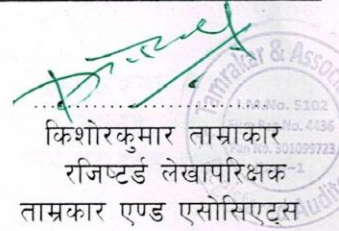 किशोरकुमार ताम्राकार
रजिष्टर्ड लेखापरिक्षक
ताम्रकार एण्ड एसोसिएट्स
Tamrakar & Associ
M.No. 5102
No. 4436
No. 301099723
Audito